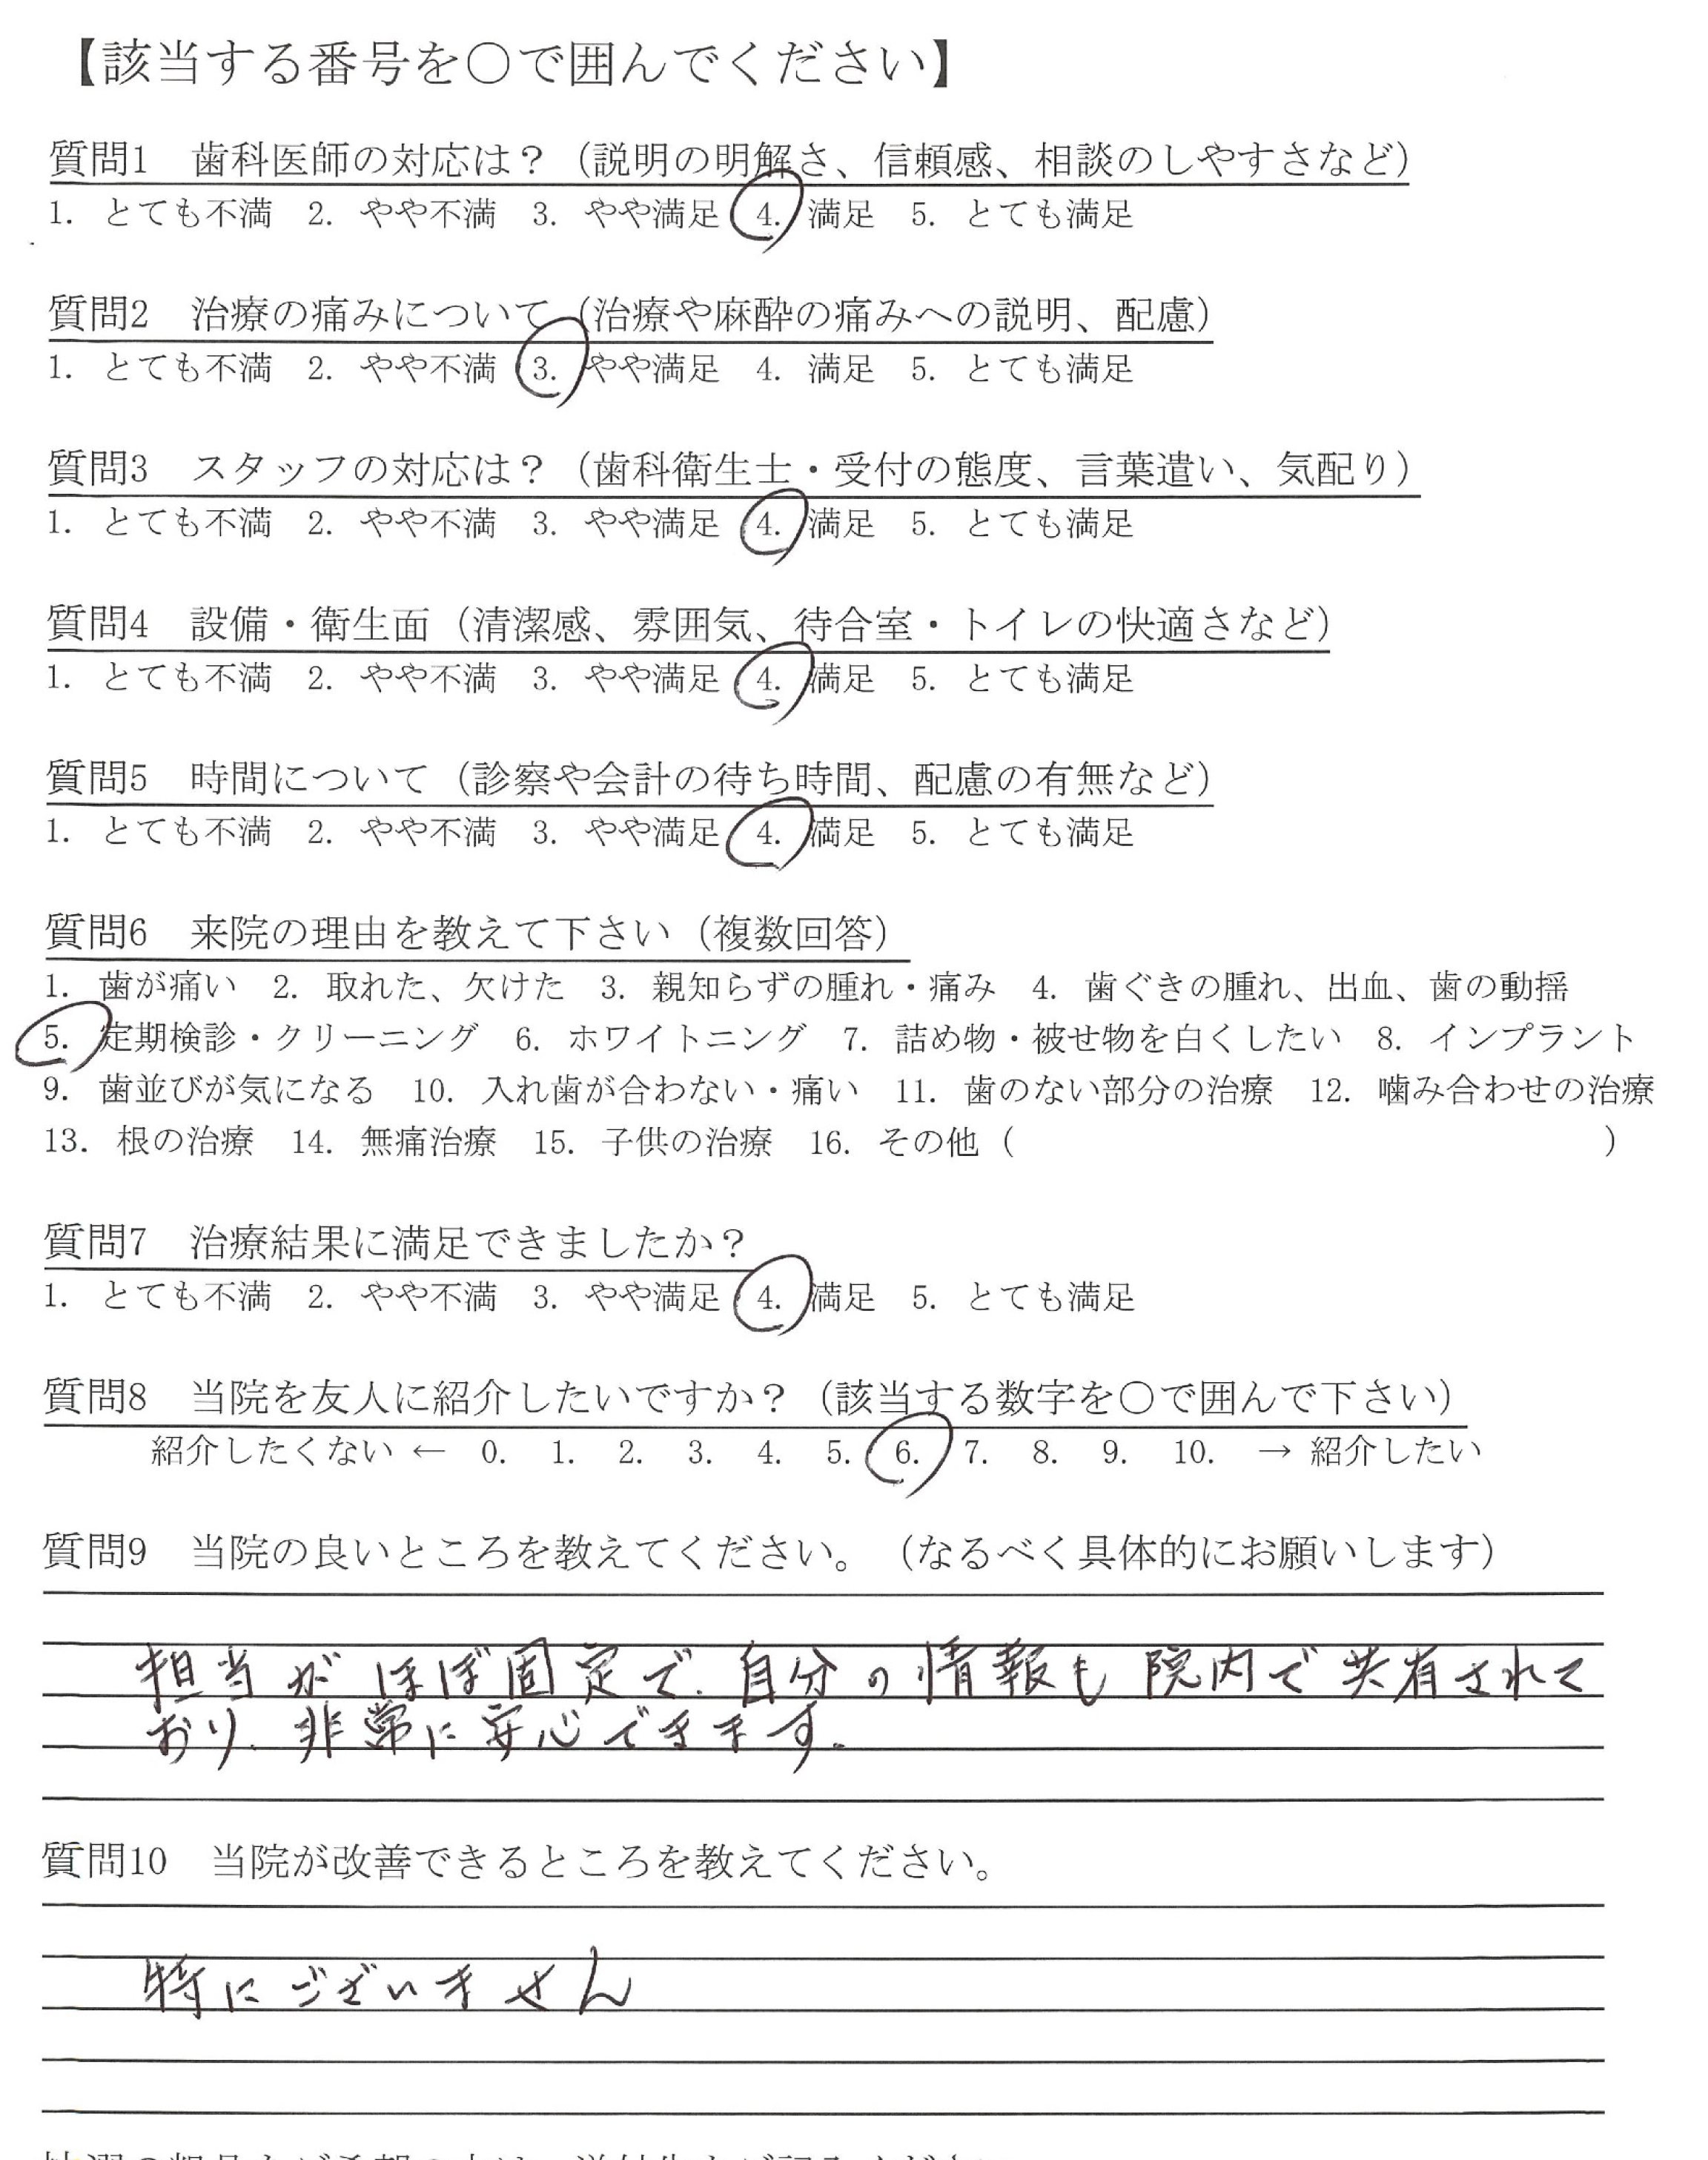 【該当する番号を○で囲んでください】
質問1　歯科医師の対応は？（説明の明解さ、信頼感、相談のしやすさなど）
1. とても不満　2. やや不満　3. やや満足　4. 満足　5. とても満足
質問2　治療の痛みについて（治療や麻酔の痛みへの説明、配慮）
1. とても不満　2. やや不満　3. やや満足　4. 満足　5. とても満足
質問3　スタッフの対応は？（歯科衛生士・受付の態度、言葉遣い、気配り）
1. とても不満　2. やや不満　3. やや満足　4. 満足　5. とても満足
質問4　設備・衛生面（清潔感、雰囲気、待合室・トイレの快適さなど）
1. とても不満　2. やや不満　3. やや満足　4. 満足　5. とても満足
質問5　時間について（診察や会計の待ち時間、配慮の有無など）
1. とても不満　2. やや不満　3. やや満足　4. 満足　5. とても満足
質問6　来院の理由を教えて下さい（複数回答）
1. 歯が痛い　2. 取れた、欠けた　3. 親知らずの腫れ・痛み　4. 歯ぐきの腫れ、出血、歯の動揺
5. 定期検診・クリーニング　6. ホワイトニング　7. 詰め物・被せ物を白くしたい　8. インプラント
9. 歯並びが気になる　10. 入れ歯が合わない・痛い　11. 歯のない部分の治療　12. 噛み合わせの治療
13. 根の治療　14. 無痛治療　15. 子供の治療　16. その他（　　　　　　　　　　）
質問7　治療結果に満足できましたか？
1. とても不満　2. やや不満　3. やや満足　4. 満足　5. とても満足
質問8　当院を友人に紹介したいですか？（該当する数字を○で囲んで下さい）
紹介したくない ← 0. 1. 2. 3. 4. 5. 6. 7. 8. 9. 10. → 紹介したい
質問9　当院の良いところを教えてください。（なるべく具体的にお願いします）
担当がほぼ固定で、自分の情報も院内で共有されて
おり、非常に安心できます。
質問10　当院が改善できるところを教えてください。
特にございません